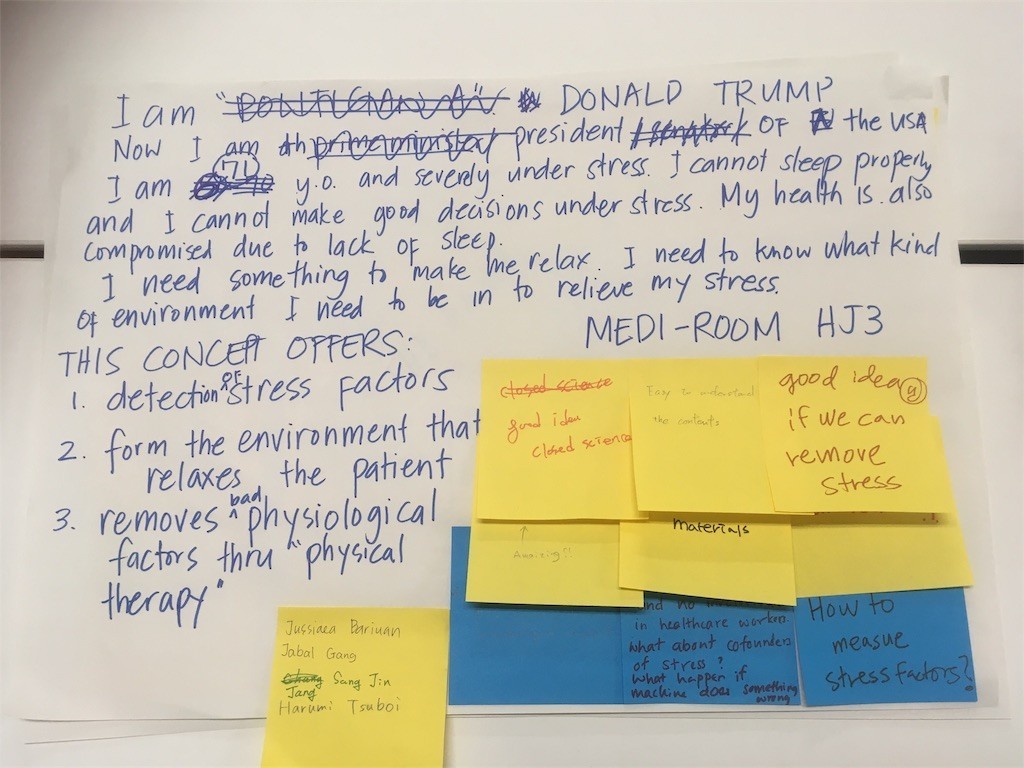 I am DONALD TRUMP
Now I am president OF the USA
71
I am y.o. and severely under stress. I cannot sleep properly
and I cannot make good decisions under stress. My health is also
compromised due to lack of sleep.
I need something to make me relax. I need to know what kind
of environment I need to be in to relieve my stress.
MEDI-ROOM HJ3
THIS CONCEPT OFFERS:
1. detection of stress factors
2. form the environment that
relaxes the patient
3. removes bad physiological
factors thru "physical
therapy"
closed science
good idea
closed science
Easy to understand
the contents
good idea
if we can
remove
stress
Amazing!!
materials
and no
in healthcare workers.
what about cofounders
of stress?
what happen if
machine does something
wrong
How to
measue
stress factors?
Jussiaea Bariuan
Jabal Gang
Sang Jin
Jang
Harumi Tsuboi